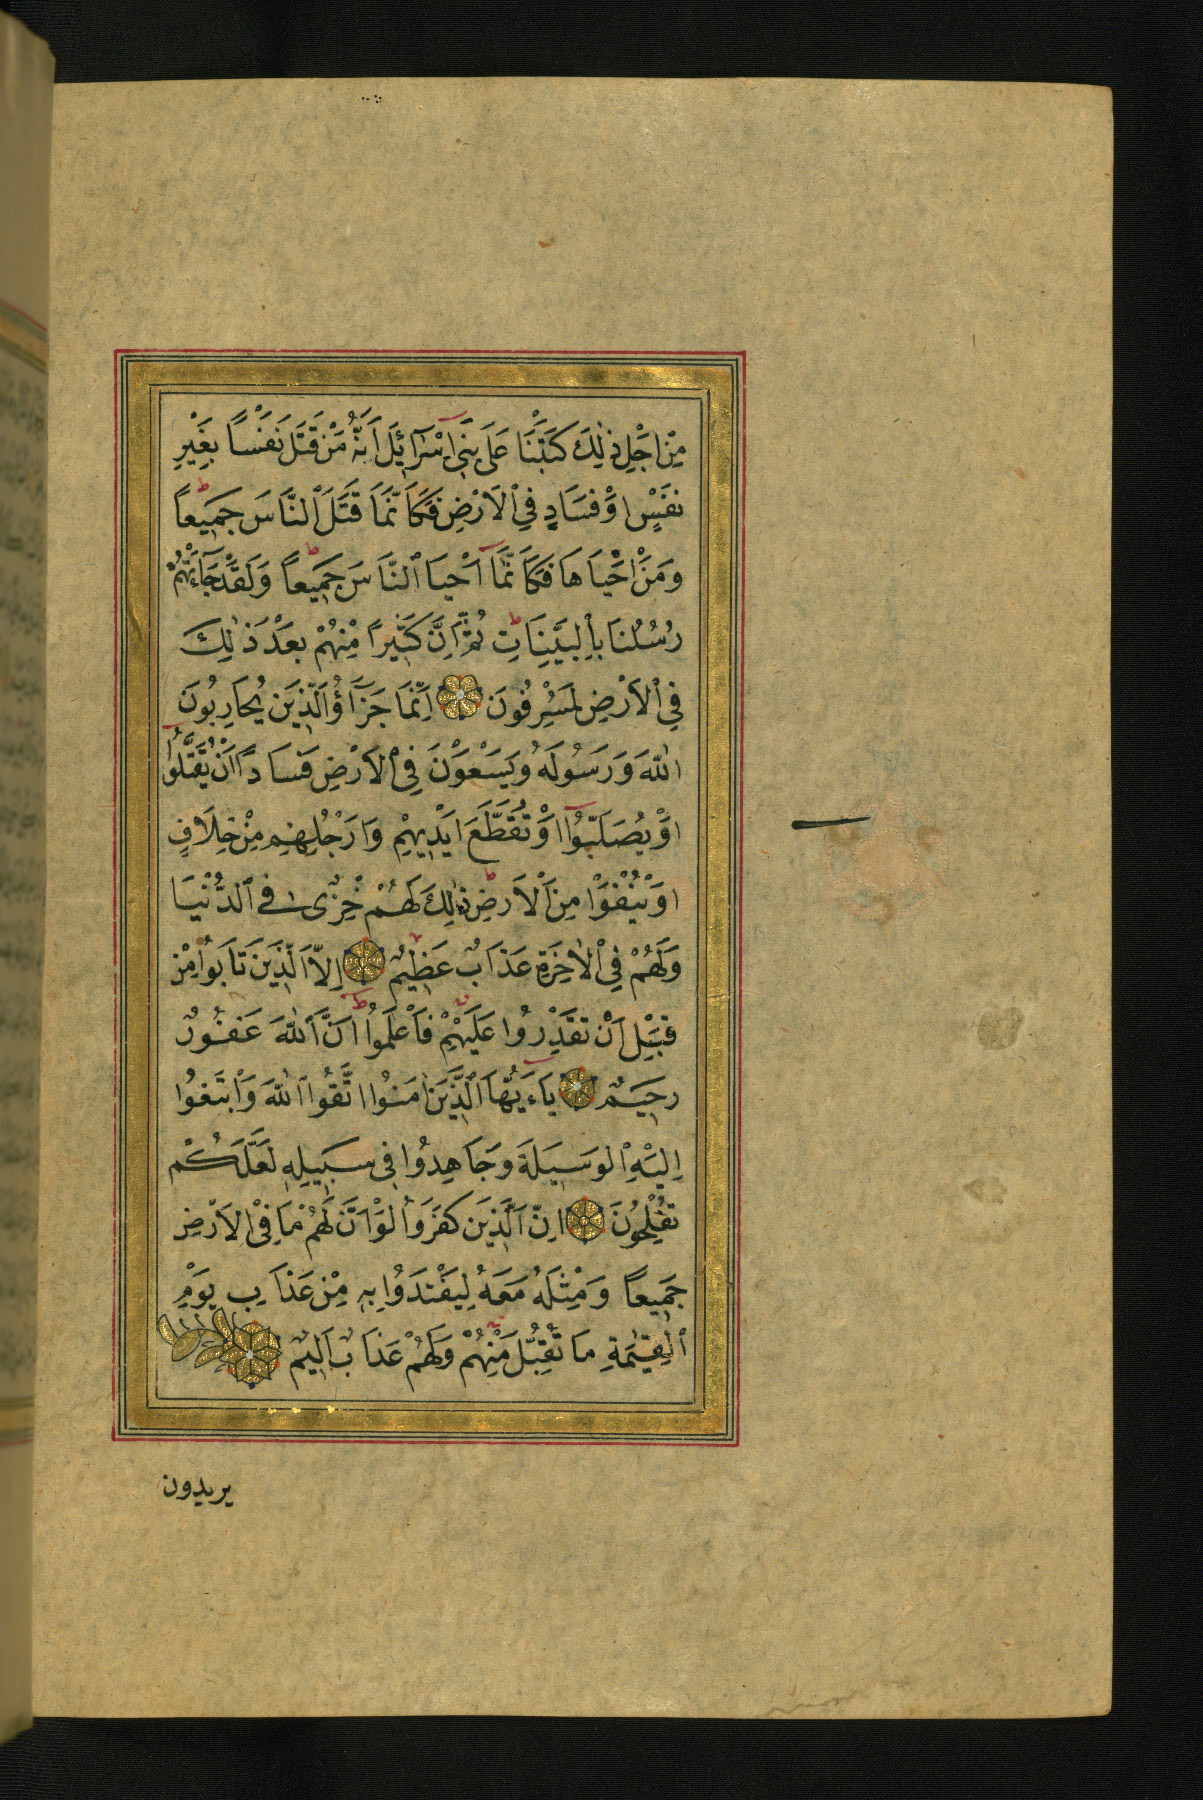 مِنْ اَجْلِ ذٰلِكَ كَتَبْنَا عَلٰى بَنٓى اِسْرَآئٖلَ اَنَّهُ مَنْ قَتَلَ نَفْسًا بِغَيْرِ
نَفْسٍ اَوْ فَسَادٍ فِى الْاَرْضِ فَكَاَنَّمَا قَتَلَ النَّاسَ جَمٖيعًا
وَمَنْ اَحْيَاهَا فَكَاَنَّمَآ اَحْيَا النَّاسَ جَمٖيعًا وَلَقَدْ جَآءَتْهُمْ
رُسُلُنَا بِالْبَيِّنَاتِ ثُمَّ اِنَّ كَثٖيرًا مِنْهُمْ بَعْدَ ذٰلِكَ
فِى الْاَرْضِ لَمُسْرِفُونَ اِنَّمَا جَزَآؤُ الَّذٖينَ يُحَارِبُونَ
اللّٰهَ وَرَسُولَهُ وَيَسْعَوْنَ فِى الْاَرْضِ فَسَادًا اَنْ يُقَتَّلُٓوا
اَوْ يُصَلَّبُٓوا اَوْ تُقَطَّعَ اَيْدٖيهِمْ وَاَرْجُلُهُمْ مِنْ خِلَافٍ
اَوْ يُنْفَوْا مِنَ الْاَرْضِ ذٰلِكَ لَهُمْ خِزْىٌ فِى الدُّنْيَا
وَلَهُمْ فِى الْاٰخِرَةِ عَذَابٌ عَظٖيمٌ اِلَّا الَّذٖينَ تَابُوا مِنْ
قَبْلِ اَنْ تَقْدِرُوا عَلَيْهِمْ فَاعْلَمُٓوا اَنَّ اللّٰهَ غَفُورٌ
رَحٖيمٌ يَآءَيُّهَا الَّذٖينَ اٰمَنُوا اتَّقُوا اللّٰهَ وَابْتَغُٓوا
اِلَيْهِ الْوَسٖيلَةَ وَجَاهِدُوا فٖى سَبٖيلِهٖ لَعَلَّكُمْ
تُفْلِحُونَ اِنَّ الَّذٖينَ كَفَرُوا لَوْ اَنَّ لَهُمْ مَا فِى الْاَرْضِ
جَمٖيعًا وَمِثْلَهُ مَعَهُ لِيَفْتَدُوا بِهٖ مِنْ عَذَابِ يَوْمِ
الْقِيٰمَةِ مَا تُقُبِّلَ مِنْهُمْ وَلَهُمْ عَذَابٌ اَلٖيمٌ
يريدون